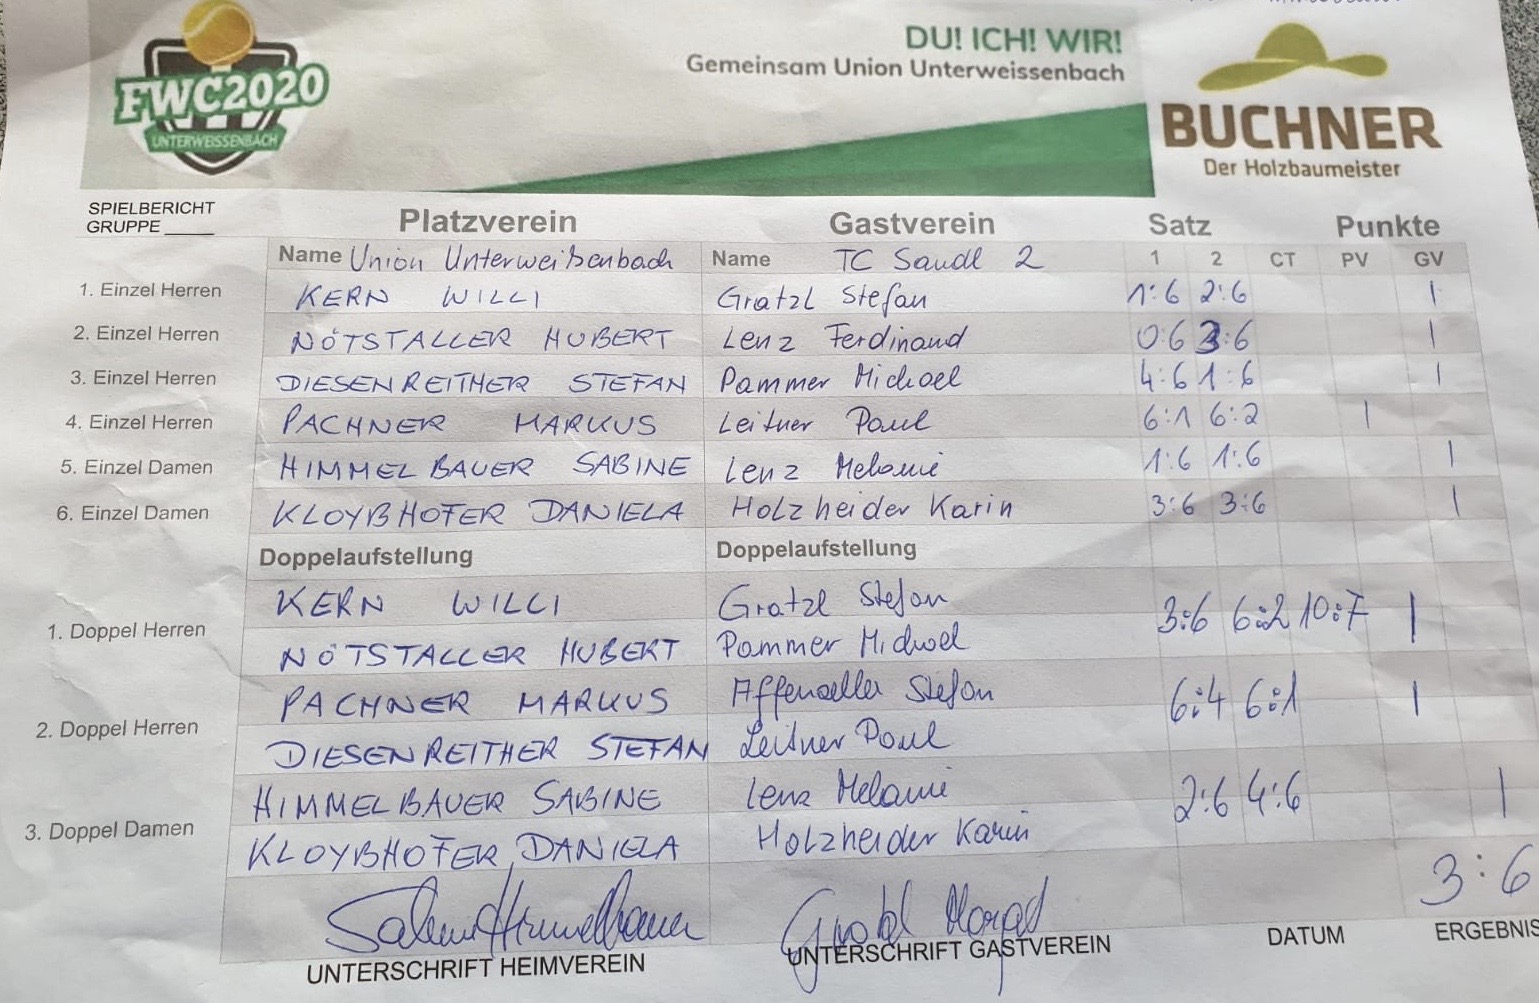 DU! ICH! WIR!
Gemeinsam Union Unterweissenbach
FWC2020
UNTERWEISSENBACH
BUCHNER
Der Holzbaumeister
SPIELBERICHT
GRUPPE ____
Platzverein Gastverein Satz Punkte
Name Union Unterweißenbach Name TC Sandl 2 1 2 CT PV GV
1. Einzel Herren KERN WILLI Gratzl Stefan 1:6 2:6 |
2. Einzel Herren NÖTSTALLER HUBERT Lenz Ferdinand 0:6 3:6 |
3. Einzel Herren DIESENREITHER STEFAN Pammer Michael 4:6 1:6 |
4. Einzel Herren PACHNER MARKUS Leitner Paul 6:1 6:2 |
5. Einzel Damen HIMMELBAUER SABINE Lenz Melanie 1:6 1:6 |
6. Einzel Damen KLOYBHOFER DANIELA Holzheider Karin 3:6 3:6 |
Doppelaufstellung Doppelaufstellung
KERN WILLI Gratzl Stefan
1. Doppel Herren 3:6 6:2 10:7 |
NÖTSTALLER HUBERT Pammer Michael
PACHNER MARKUS Affenzeller Stefan
2. Doppel Herren 6:4 6:1 |
DIESENREITHER STEFAN Leitner Paul
HIMMELBAUER SABINE Lenz Melanie
3. Doppel Damen 2:6 4:6 |
KLOYBHOFER DANIELA Holzheider Karin
3:6
Sabine Himmelbauer Gratzl
UNTERSCHRIFT HEIMVEREIN UNTERSCHRIFT GASTVEREIN DATUM ERGEBNIS